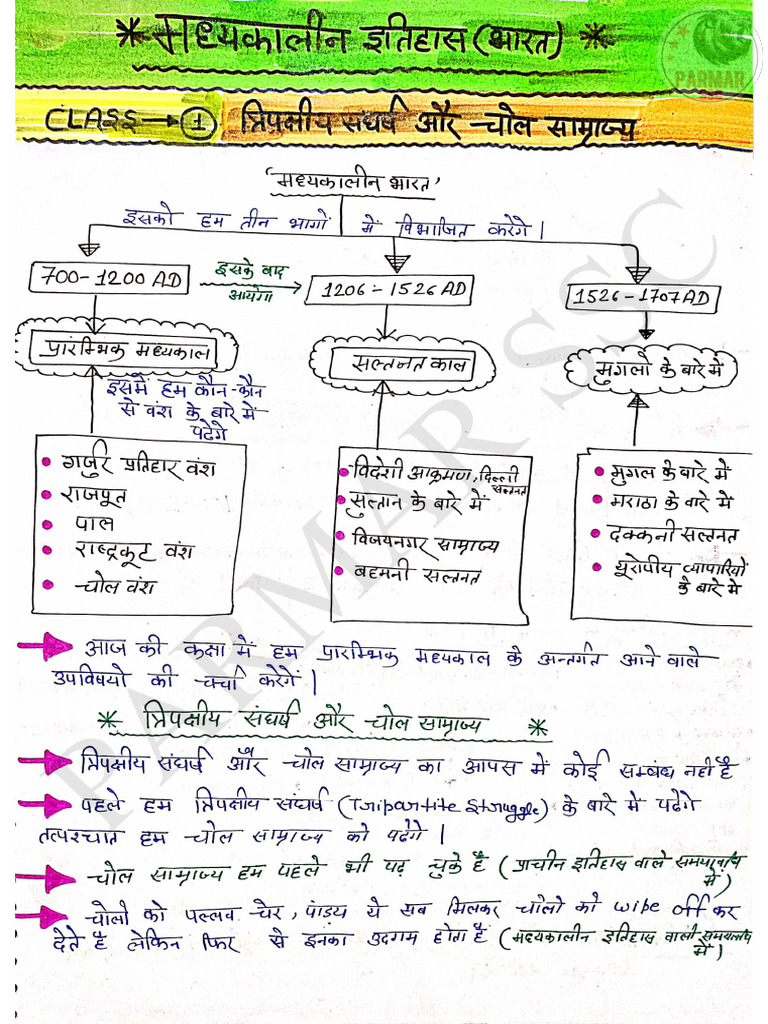 * मध्यकालीन इतिहास (भारत) *
PARMAR
CLASS → 1 त्रिपक्षीय संघर्ष और चोल साम्राज्य
'मध्यकालीन भारत'
इसको हम तीन भागों में विभाजित करेंगे।
700-1200 AD
इसके बाद
आयेगा
1206 - 1526 AD
1526-1707 AD
प्रारम्भिक मध्यकाल
सल्तनत काल
मुगलों के बारे में
इसमें हम कौन-कौन
से वंश के बारे में
पढेंगे
• गर्जुर प्रतिहार वंश
• राजपूत
• पाल
• राष्ट्रकूट वंश
• चोल वंश
• विदेशी आक्रमण, दिल्ली
सल्तनत
• सुल्तान के बारे में
• विजयनगर साम्राज्य
• बहमनी सल्तनत
• मुगल के बारे में
• मराठा के बारे में
• दक्कनी सल्तनत
• यूरोपीय व्यापारियों
के बारे में
आज की कक्षा में हम प्रारम्भिक मध्यकाल के अन्तर्गत आने वाले
उपविषयो की चर्चा करेंगें।
* त्रिपक्षीय संघर्ष और चोल साम्राज्य *
त्रिपक्षीय संघर्ष और चोल साम्राज्य का आपस में कोई सम्बंध नहीं है
पहले हम त्रिपक्षीय संघर्ष (Tripartite Struggle) के बारे में पढेंगे
तत्पश्चात हम चोल साम्राज्य को पढेंगे।
चोल साम्राज्य हम पहले भी पढ़ चुके है (प्राचीन इतिहास वाले समयावधि
में)
चोलो को पल्लव चेर, पांड्य ये सब मिलकर चोलो को wipe off कर
देते है लेकिन फिर से इनका उदगम होता है (मध्यकालीन इतिहास वाली समयावधि
में)
PARMAR SSC